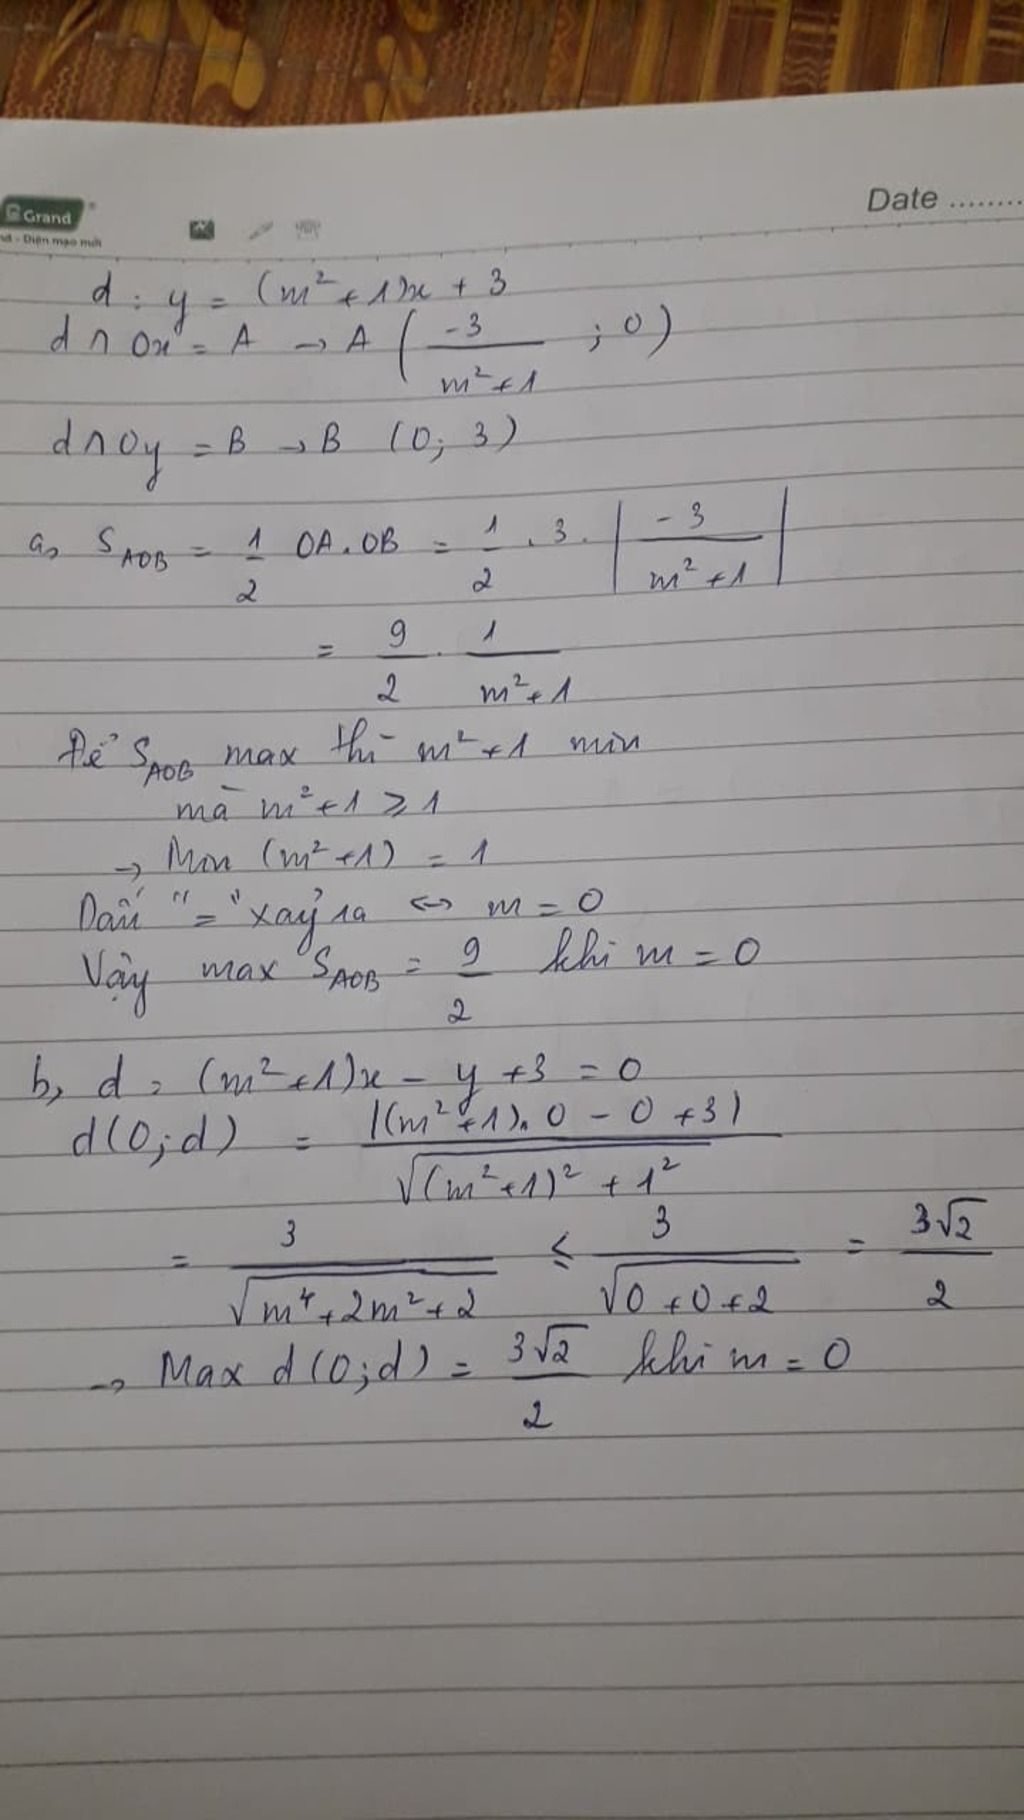 Grand
Date ........
nd - Diện mạo mới
d : y = (m² + 1)x + 3
d ∩ Ox = A → A ( -3 / m² + 1 ; 0 )
d ∩ Oy = B → B (0; 3)
a, S_AOB = 1/2 OA.OB = 1/2 . 3 . | -3 / m² + 1 |
= 9/2 . 1 / m² + 1
Để S_AOB max thì m² + 1 min
mà m² + 1 ⩾ 1
→ Min (m² + 1) = 1
Dấu "=" xảy ra ↔ m = 0
Vậy max S_AOB = 9/2 khi m = 0
b, d : (m² + 1)x - y + 3 = 0
d(O; d) = |(m² + 1). 0 - 0 + 3| / √(m² + 1)² + 1²
= 3 / √m⁴ + 2m² + 2 ≤ 3 / √0 + 0 + 2 = 3√2 / 2
→ Max d(O; d) = 3√2 / 2 khi m = 0